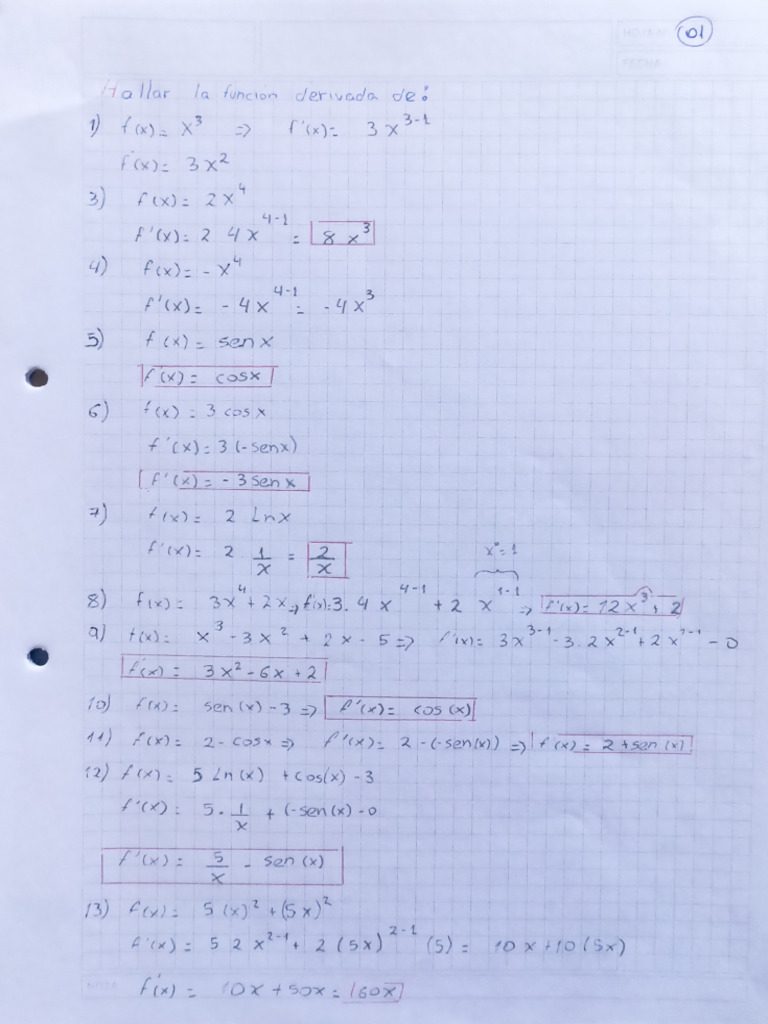 01
Hallar la funcion derivada de:
1) f(x)= x³ => f'(x)= 3x³⁻¹
f'(x)= 3x²
3) f(x)= 2x⁴
f'(x)= 2 4x⁴⁻¹ = 8x³
4) f(x)= -x⁴
f'(x)= -4x⁴⁻¹ = -4x³
5) f(x)= sen x
f'(x)= cosx
6) f(x)= 3 cosx
f'(x)= 3(-senx)
f'(x)= -3senx
7) f(x)= 2 Lnx
f'(x)= 2 · 1/x = 2/x
x⁰=1
8) f(x)= 3x⁴+2x => f'(x)=3.4x⁴⁻¹ + 2 x¹⁻¹ => f'(x)= 12x³+2
9) f(x)= x³-3x²+2x-5 => f'(x)= 3x³⁻¹-3.2x²⁻¹+2x¹⁻¹-0
f'(x)= 3x²-6x+2
10) f(x)= sen(x)-3 => f'(x)= cos(x)
11) f(x)= 2-cosx => f'(x)= 2-(-sen(x)) => f'(x)= 2+sen(x)
12) f(x)= 5 Ln(x) +cos(x)-3
f'(x)= 5 · 1/x + (-sen(x)-0
f'(x)= 5/x - sen(x)
13) f(x)= 5(x)²+(5x)²
f'(x)= 5 2 x²⁻¹+ 2(5x)²⁻¹ (5) = 10x+10(5x)
NOTA
f'(x)= 10x+50x= 60x